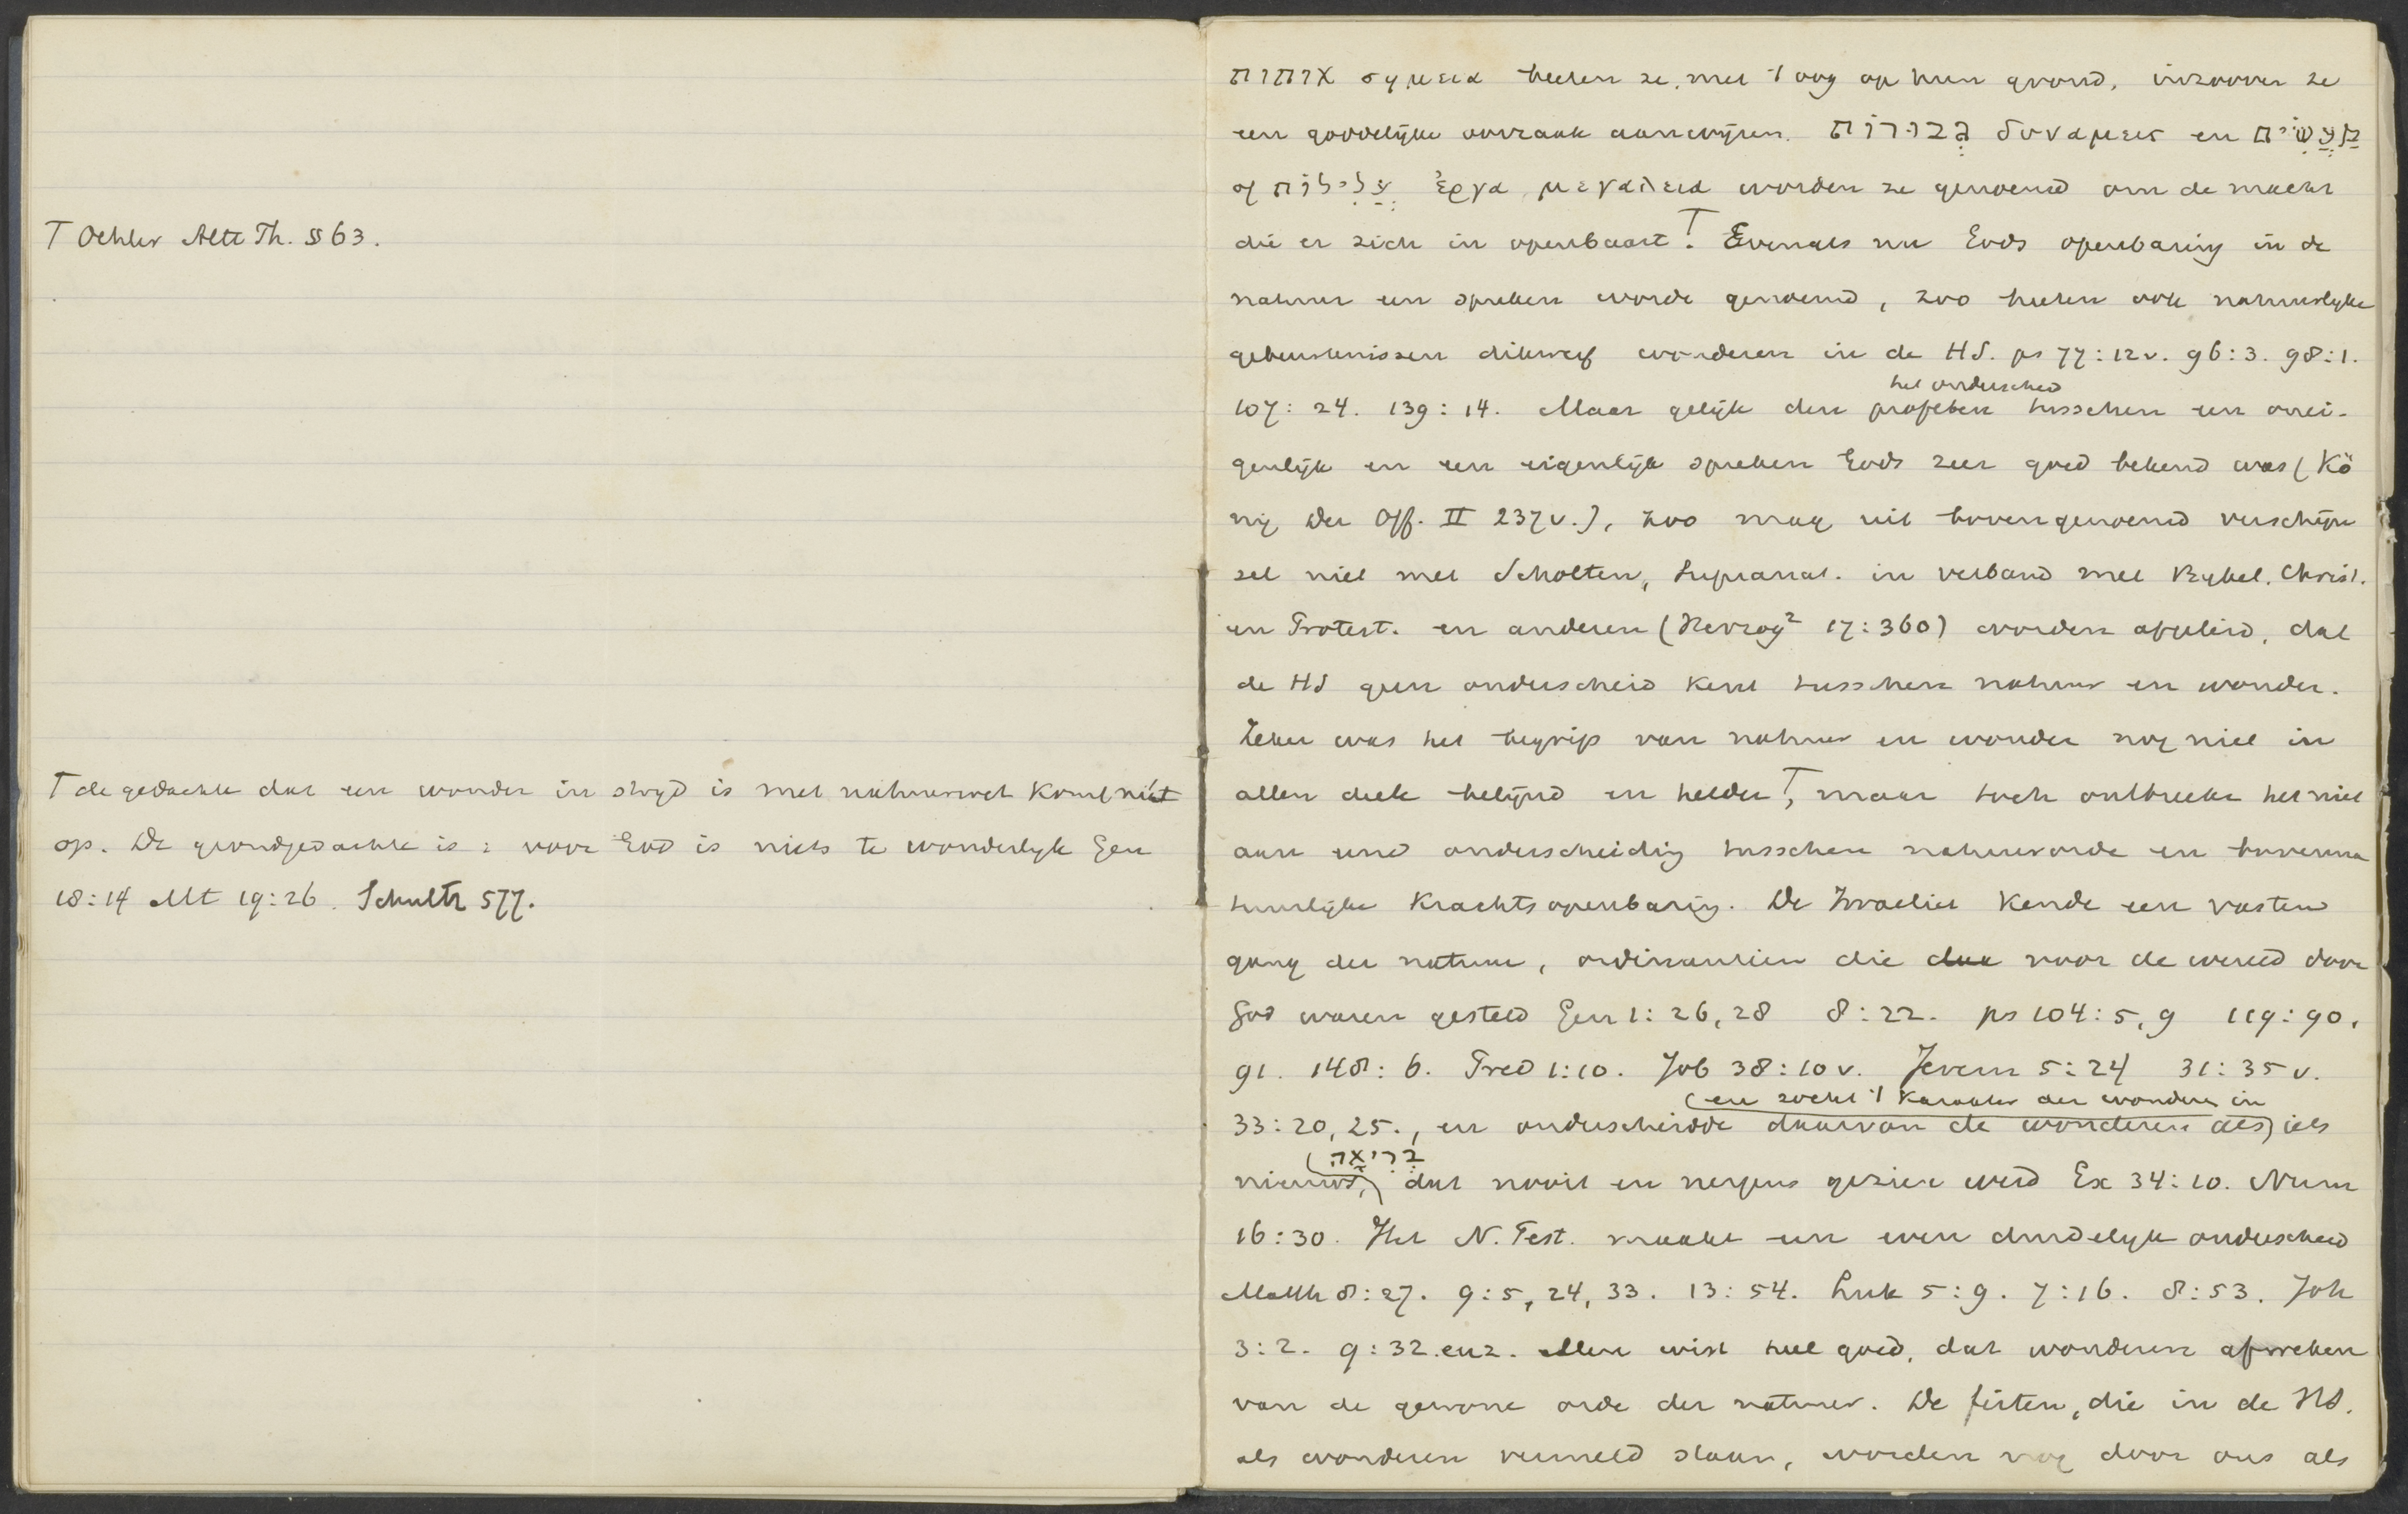 T Oehler Altt Th. § 63.
T de gedachte dat een wonder in stryd is met natuurwet komt niet
op. De grondgedachte is: voor God is niets te wonderlyk Gen
18:14 Mt 19:26. Schultz 577.
אותות σημεια heeten ze, met 't oog op hun grond, inzoover ze
een goddelijke oorzaak aanwijzen. גבורות δυναμεις en מעשים
of עלילות ἐργα, μεγαλεια worden ze genoemd om de macht
die er zich in openbaart.T Evenals nu Gods openbaring in de
natuur een spreken wordt genoemd, zoo heeten ook natuurlyke
gebeurtenissen dikwerf wonderen in de HS. ps 77:12v. 96:3. 98:1.
107:24. 139:14. Maar gelijk den profeten het onderscheid tusschen een onei-
genlijk en een eigenlijk spreken Gods zeer goed bekend was (Kö
nig Der Off. II 237v.), zoo mag uit bovengenoemd verschijn
sel niet met Scholten, Supranat. in verband met Bybel, Christ.
en Protest. en anderen (Herzog² 17:360) worden afgeleid, dat
de HS geen onderscheid kent tusschen natuur en wonder.
Zeker was het begrip van natuur en wonder nog niet in
allen deele belijnd en helder T, maar toch ontbreekt het niet
aan eene onderscheiding tusschen natuurorde en bovenna
tuurlijke krachtsopenbaring. De Israeliet kende een vasten
gang der natuur, ordinantien die voor de wereld door
God waren gesteld Gen 1:26,28 8:22. ps 104:5,9 119:90,
91. 148:6. Pred 1:10. Job 38:10v. Jerem 5:24 31:35v.
33:20,25., en onderscheidde daarvan de wonderen als (en zocht 't karakter der wonderen in) iets
nieuws, (בריאה) dat nooit en nergens gezien werd Ex 34:10. Num
16:30. Het N. Test. maakt een even duidelyk onderscheid
Matth 8:27. 9:5,24,33. 13:54. Luk 5:9. 7:16. 8:53. Joh
3:2. 9:32. enz. Men wist heel goed, dat wonderen afweken
van de gewone orde der natuur. De feiten, die in de HS.
als wonderen vermeld staan, worden nog door ons als